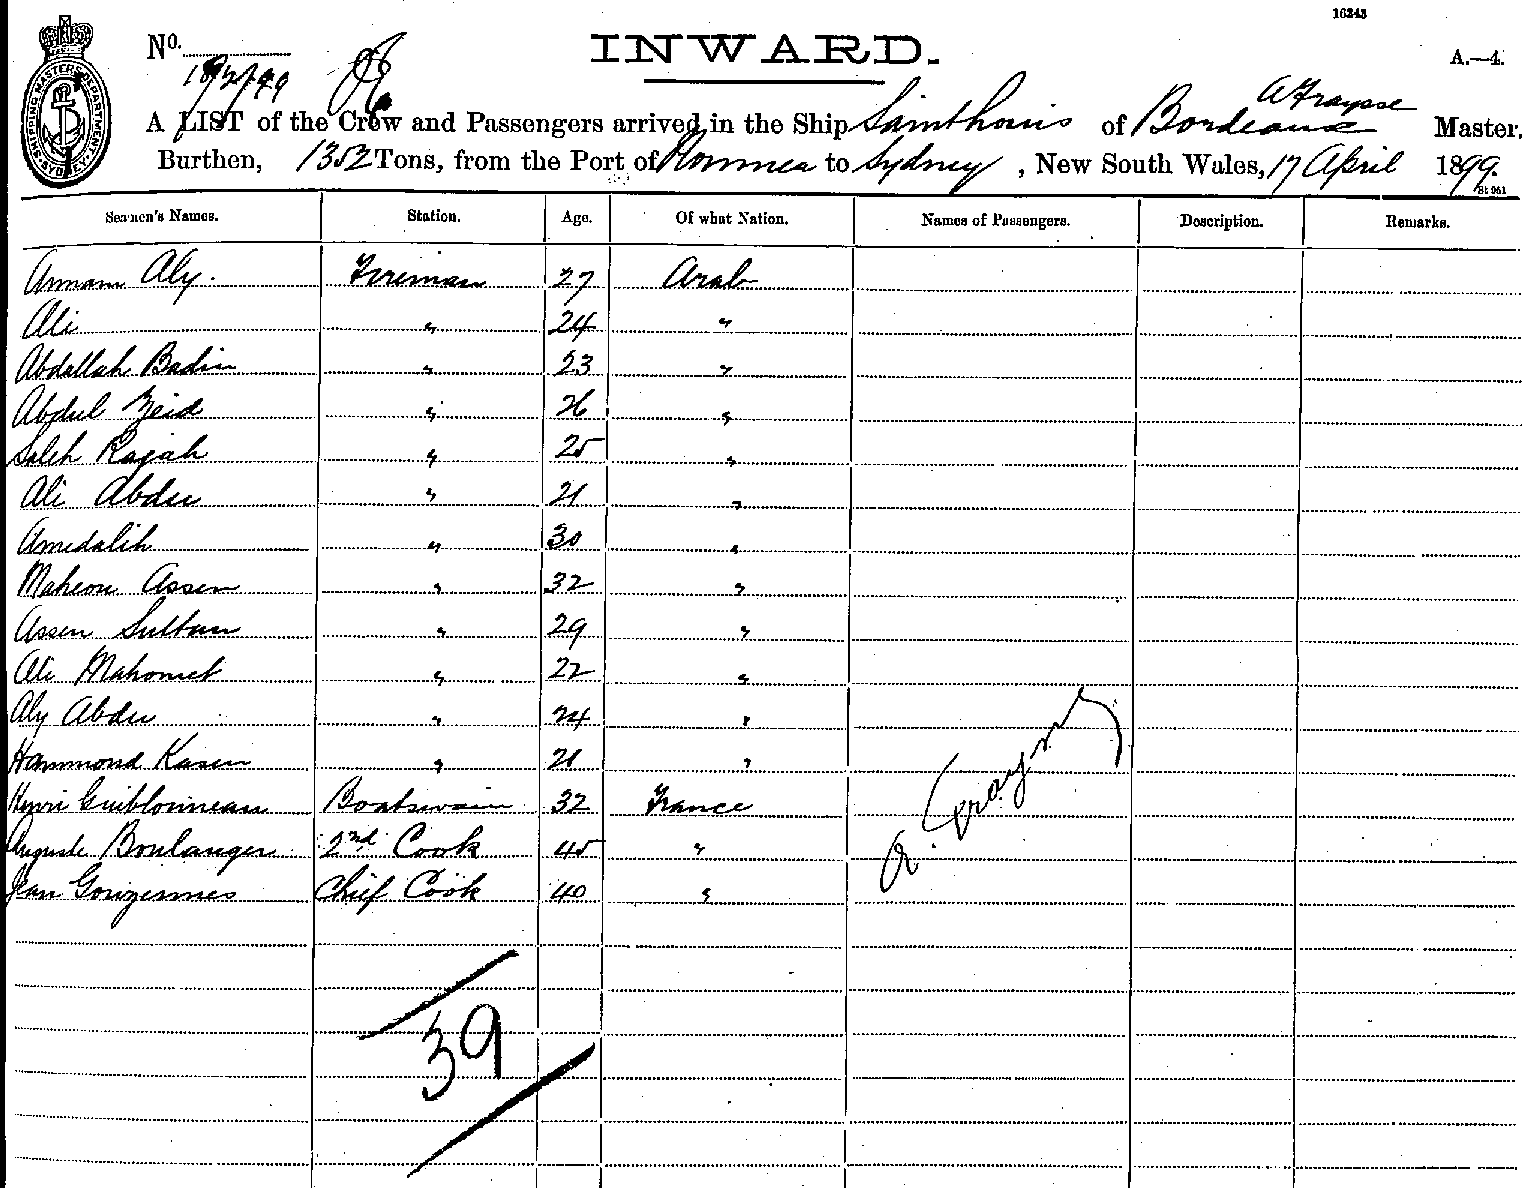 16243
No.
INWARD.
A.—4.
18/4/99
A Fraysse
A LIST of the Crew and Passengers arrived in the Ship Saint Louis of Bordeaux Master,
Burthen, 1352 Tons, from the Port of Noumea to Sydney, New South Wales, 17 April 1899.
St 961
Seamen's Names. Station. Age. Of what Nation. Names of Passengers. Description. Remarks.
Amam Aly. Fireman 27 Arab
Ali " 24 "
Abdallah Badin " 23 "
Abdul Zeid " 26 "
Saleh Rajah " 25 "
Ali Abdu " 21 "
Amedalih " 30 "
Maheou Assen " 32 "
Assen Sultan " 29 "
Ali Mahomet " 22 "
Aly Abdu " 24 "
Hammond Kasem " 21 "
Henri Guiblonneau Boatswain 32 France
Auguste Boulanger 2nd Cook 45 "
Jean Gouzennes Chief Cook 40 "
A. Fraysse
39